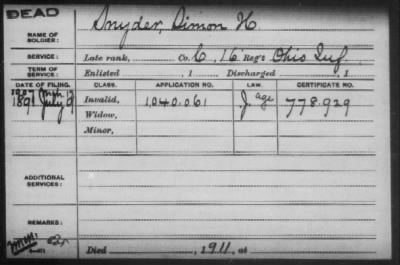 DEAD
NAME OF SOLDIER: Snyder, Simon H
SERVICE: Late rank, Co. C, 16 Reg't Ohio Inf
TERM OF SERVICE: Enlisted , 1 Discharged , 1
DATE OF FILING. CLASS. APPLICATION NO. LAW. CERTIFICATE NO.
1907 Mch.
1891 July 9 Invalid, 1,040,061 J. age 778.929
Widow,
Minor,
ADDITIONAL SERVICES:
REMARKS:
Died , 1911, at